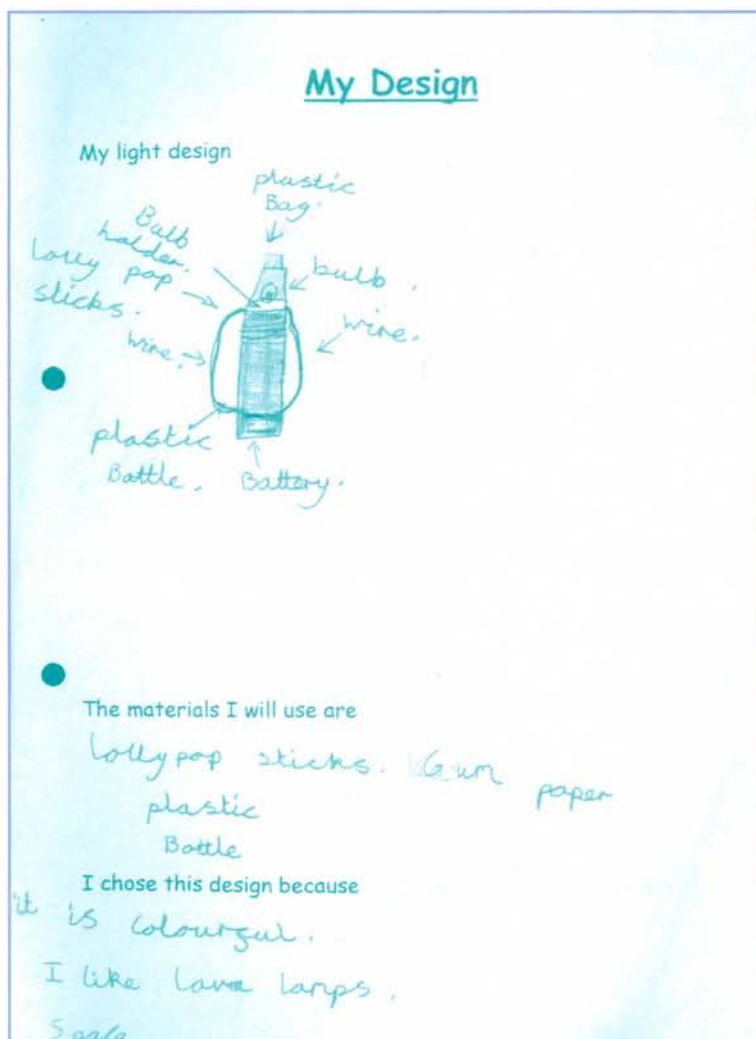 My Design
My light design
plastic
Bag.
Bulb
holder.
lolly pop
sticks.
bulb.
wire.
wire.
plastic
Bottle.
Battery.
The materials I will use are
Lollypop sticks. Gum paper
plastic
Bottle
I chose this design because
it is colourful.
I like lava lamps.